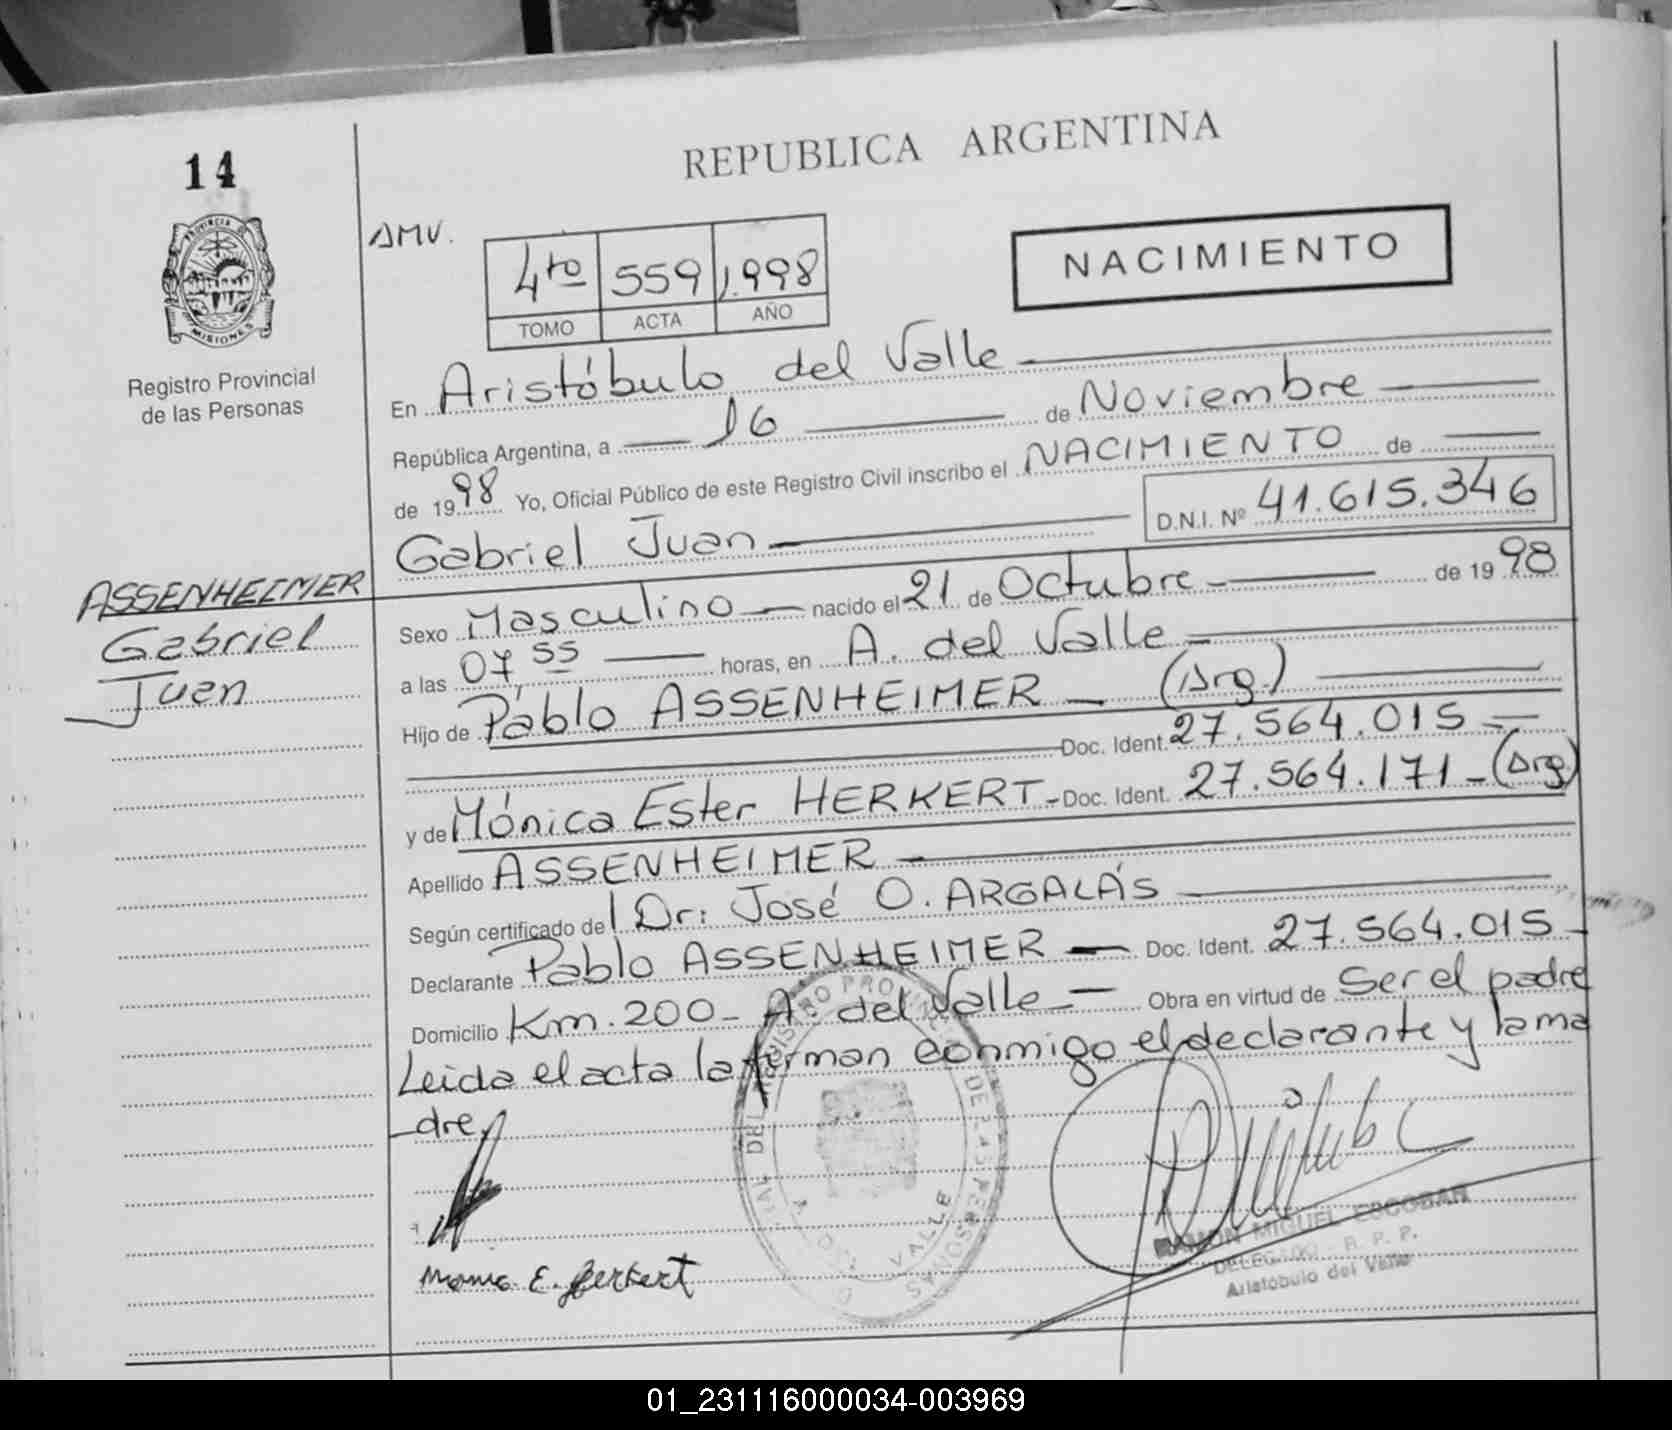 14
REPUBLICA ARGENTINA
PROVINCIA DE
MISIONES
Registro Provincial
de las Personas
AMV.
4to 559 1.998
TOMO ACTA AÑO
NACIMIENTO
En Aristóbulo del Valle
República Argentina, a 16 de Noviembre
de 1998 Yo, Oficial Público de este Registro Civil inscribo el NACIMIENTO de
Gabriel Juan D.N.I. Nº 41.615.346
ASSENHEIMER
Gabriel
Juan
Sexo Masculino nacido el 21 de Octubre de 1998
a las 07,55 horas, en A. del Valle
Hijo de Pablo ASSENHEIMER (Arg.)
Doc. Ident. 27.564.015
y de Mónica Ester HERKERT Doc. Ident. 27.564.171 (Arg)
Apellido ASSENHEIMER
Según certificado del Dr: José O. ARGALÁS
Declarante Pablo ASSENHEIMER Doc. Ident. 27.564.015
Domicilio Km. 200- A. del Valle Obra en virtud de Ser el padre
Leida el acta la firman conmigo el declarante y la ma
dre,
REGISTRO PROVINCIAL DE LAS PERSONAS
VALLE
E. Herkert
RAMON MIGUEL ESCOBAR
DELEGADO - R. P. P.
Aristóbulo del Valle
01_231116000034-003969